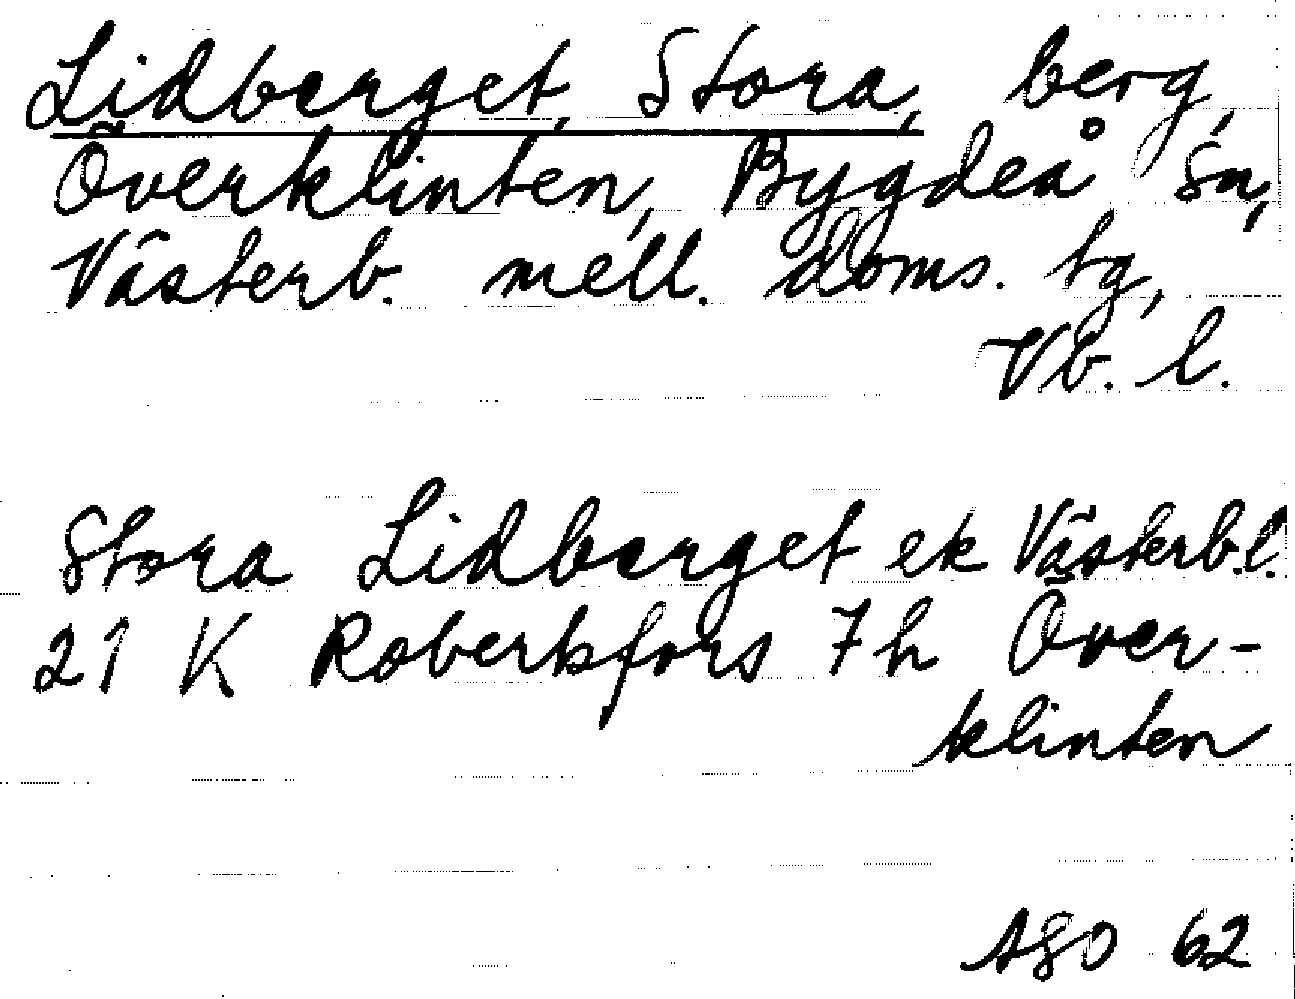 Lidberget, Stora, berg,
Överklinten, Bygdeå sn,
Västerb. mell. doms. tg,
Vb. l.
Stora Lidberget ek Västerb.l.
21 K Robertsfors 7h Över-
klinten
ASO 62